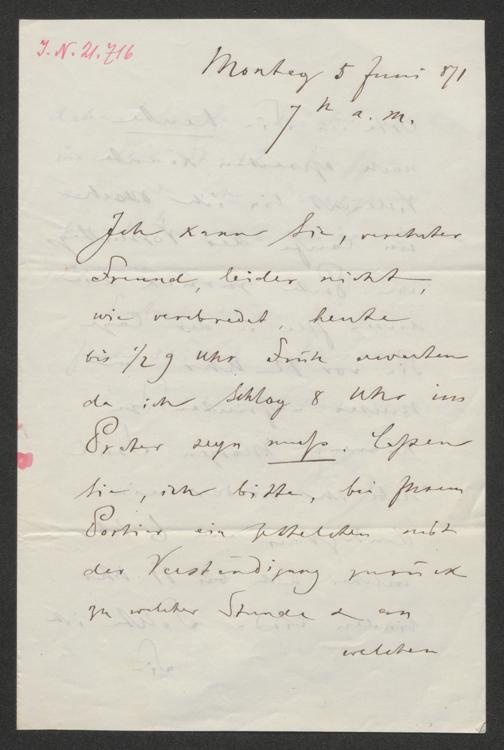 J. N. 21.716
Montag 5 Juni 871
7 h a. m.
Ich kann Sie, verehrter
Freund, leider nicht,
wie verabredet, heute
bis 1/2 9 Uhr Früh erwarten
da ich Schlag 8 Uhr im
Prater seyn muß. Laßen
Sie, ich bitte, bei Ihrem
Portier ein Zettelchen mit
der Verständigung zurück
zu welcher Stunde & an
welchem